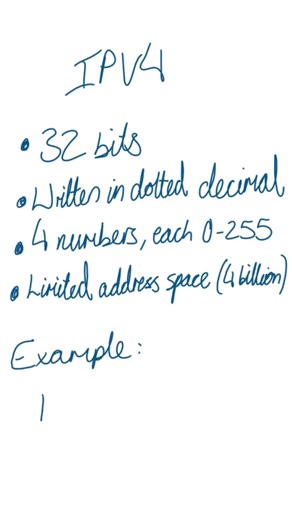 IPV4
• 32 bits
• Written in dotted decimal
• 4 numbers, each 0-255
• Limited address space (4 billion)
Example:
1